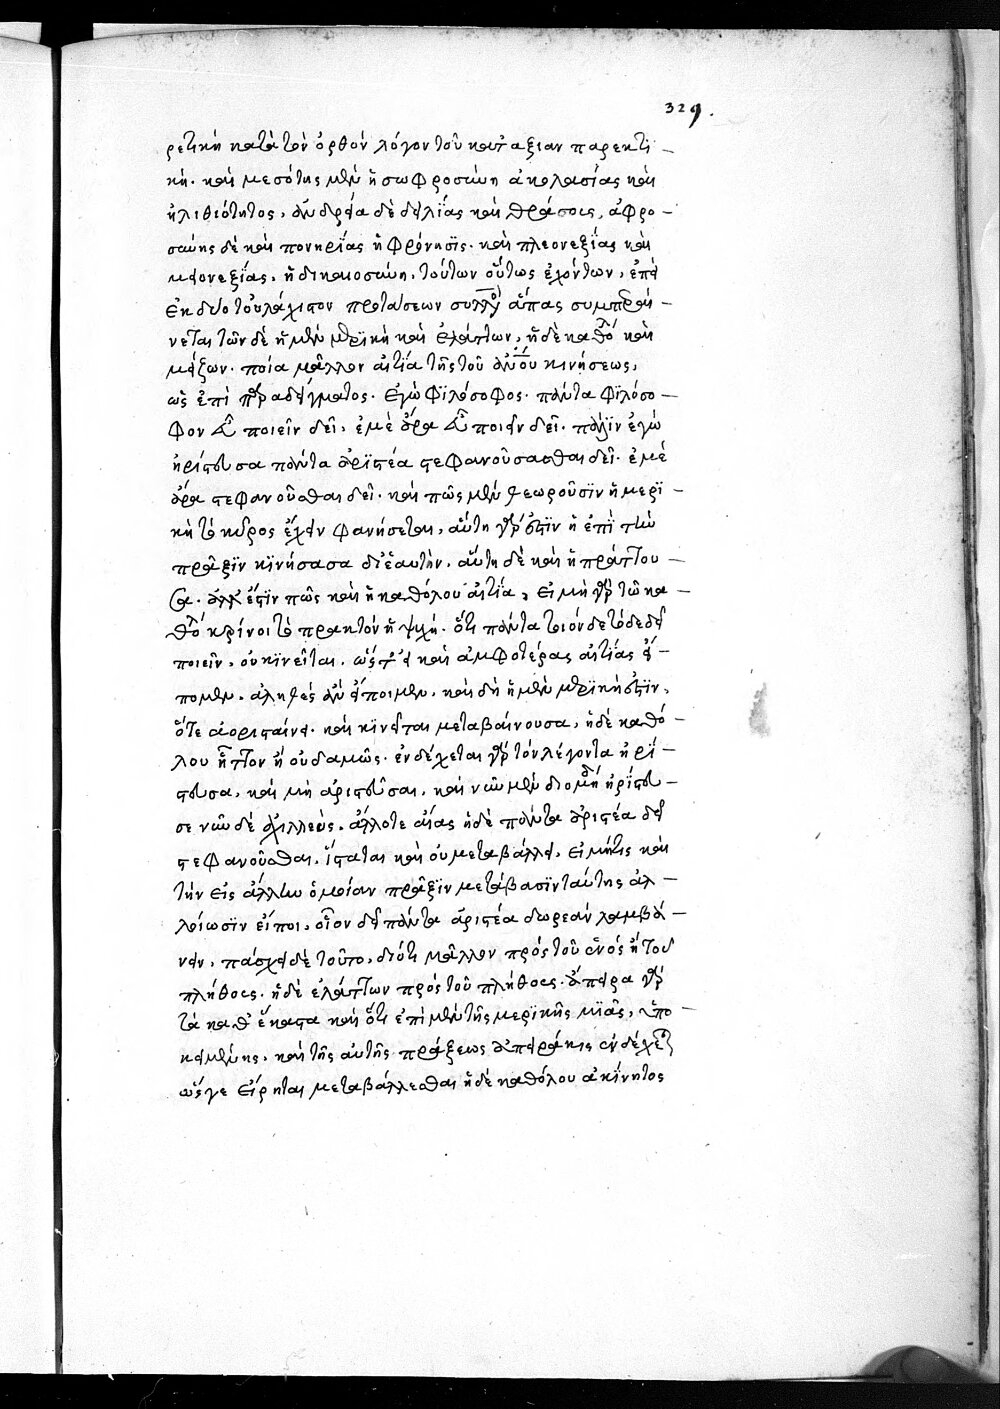 329.
ρετικὴ κατὰ τὸν ὀρθὸν λόγον τοῦ κατ' ἀξίαν παρεκτι-
κή. καὶ μεσότης μὲν ἡ σωφροσύνη ἀκολασίας καὶ
ἠλιθιότητος, ἀνδρεία δὲ δειλίας καὶ θράσους, ἀφρο-
σύνης δὲ καὶ πονηρίας ἡ φρόνησις. καὶ πλεονεξίας καὶ
μειονεξίας, ἡ δικαιοσύνη, τούτων οὕτως ἐχόντων, ἐπεὶ
ἐκ δύο τοὐλάχιστον προτάσεων συλλο ἅπας συμπεραί-
νεται τῶν δὲ ἡ μὲν μερικὴ καὶ ἐλάττων, ἡ δὲ καθό καὶ
μείζων. ποία μᾶλλον αἰτία τῆς τοῦ ἀνου κινήσεως,
ὡς ἐπὶ παραδείγματος. ἐγὼ φιλόσοφος. πάντα φιλόσο-
φον ποιεῖν δεῖ, ἐμὲ ἄρα ποιεῖν δεῖ. πάλιν ἐγὼ
ἠρίστευσα πάντα ἀριστέα στεφανοῦσθαι δεῖ. ἐμὲ
ἄρα στεφανοῦσθαι δεῖ. καὶ πῶς μὲν θεωροῦσιν ἡ μερι-
κὴ τὸ κῦρος ἔχειν φανήσεται, αὕτη γάρ ἐστιν ἡ ἐπὶ τὴν
πρᾶξιν κινήσασα δι' ἑαυτὴν, αὕτη δὲ καὶ ἡ πράττου-
σα. ἀλλ' ἔστιν πῶς καὶ ἡ καθόλου αἰτία, εἰ μὴ γὰρ τῶ κα-
θό κρίνοι τὸ πρακτὸν ἡ ψυχή. ὅτι πάντα τοιόνδε τόδε δεῖ
ποιεῖν, οὐ κινεῖται. ὥστ' εἰ καὶ ἀμφοτέρας αἰτίας εἴ-
πομεν. ἀληθὲς ἂν εἴποιμεν. καὶ δὴ ἡ μὲν μερικὴ ἐστιν,
ὅτε ἀορισταίνει. καὶ κινεῖται μεταβαίνουσα, ἡ δὲ καθό-
λου ἧττον ἢ οὐδαμῶς. ἐνδέχεται γὰρ τὸν λέγοντα ἠρί-
στευσα, καὶ μὴ ἀριστεῦσαι. καὶ νῦν μὲν διομή ἠρίστευ-
σε νῦν δὲ ἀχιλλεὺς. ἄλλοτε αἴας ἡ δὲ πάντα ἀριστέα δεῖ
στεφανοῦσθαι. ἵσταται καὶ οὐ μεταβάλλει, εἰ μή τις καὶ
τὴν εἰς ἄλλην ὁμοίαν πρᾶξιν μετάβασιν ταύτης ἀλ-
λοίωσιν εἴποι, οἷον δεῖ πάντα ἀριστέα δωρεὰν λαμβά-
νειν, πάσχει δὲ τοῦτο, διότι μᾶλλον πρὸς τοῦ ἑνός ἢ τοῦ
πλήθους. ἡ δὲ ἐλάττων πρὸς τοῦ πλήθους. ἄπειρα γὰρ
τὰ καθ' ἕκαστα καὶ ὅτι ἐπὶ μὲν τῆς μερικῆς μιᾶς, ὑπο-
κειμένης, καὶ τῆς αὐτῆς πράξεως ἀπειράκις ἐνδέχεται
ὥς γε εἴρηται μεταβάλλεσθαι ἡ δὲ καθόλου ἀκίνητος